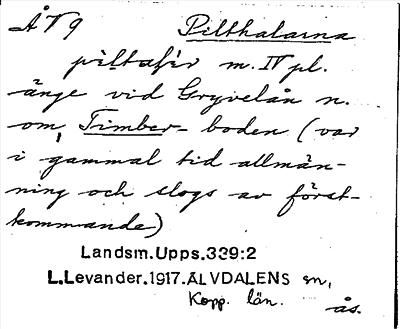 ÅT9 Pilthalarna
m. IV pl.
änge vid Gryvelån n.
om Timber- boden (var
i gammal tid allmän-
ning och slogs av först-
kommande)
Landsm.Upps.339:2
L.Levander.1917.ÄLVDALENS sn,
Kopp. län. ås.